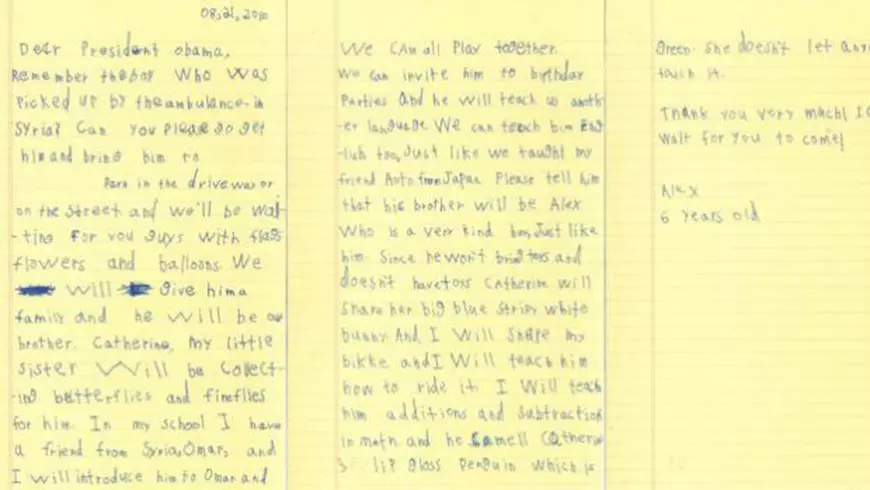 08.21.2016
Dear President obama,
Remember the boy who was
picked up by the ambulance in
Syria? Can you please go get
him and bring him to
Park in the driveway or
on the street and we'll be wai-
-ting for you guys with flags
flowers and balloons. We
will give him a
family and he will be our
brother. Catherine, my little
sister will be collect-
-ing butterflies and fireflies
for him. In my school I have
a friend from Syria, Omar, and
I will introduce him to Omar and
We can all play together.
We can invite him to birthday
parties and he will teach us anoth-
-er language. We can teach him Eng-
-lish too, Just like we taught my
friend Aoto from Japan. Please tell him
that his brother will be Alex
who is a very kind boy, Just like
him. Since he won't bring toys and
doesn't have toys Catherine will
share her big blue stripy white
bunny. And I will share my
bikke and I will teach him
how to ride it. I will teach
him additions and subtractions
in math and he smell Catherine
's lip gloss penguin which is
green. She doesn't let any
touch it.
Thank you very much! I c
wait for you to come!
Alex
6 years old